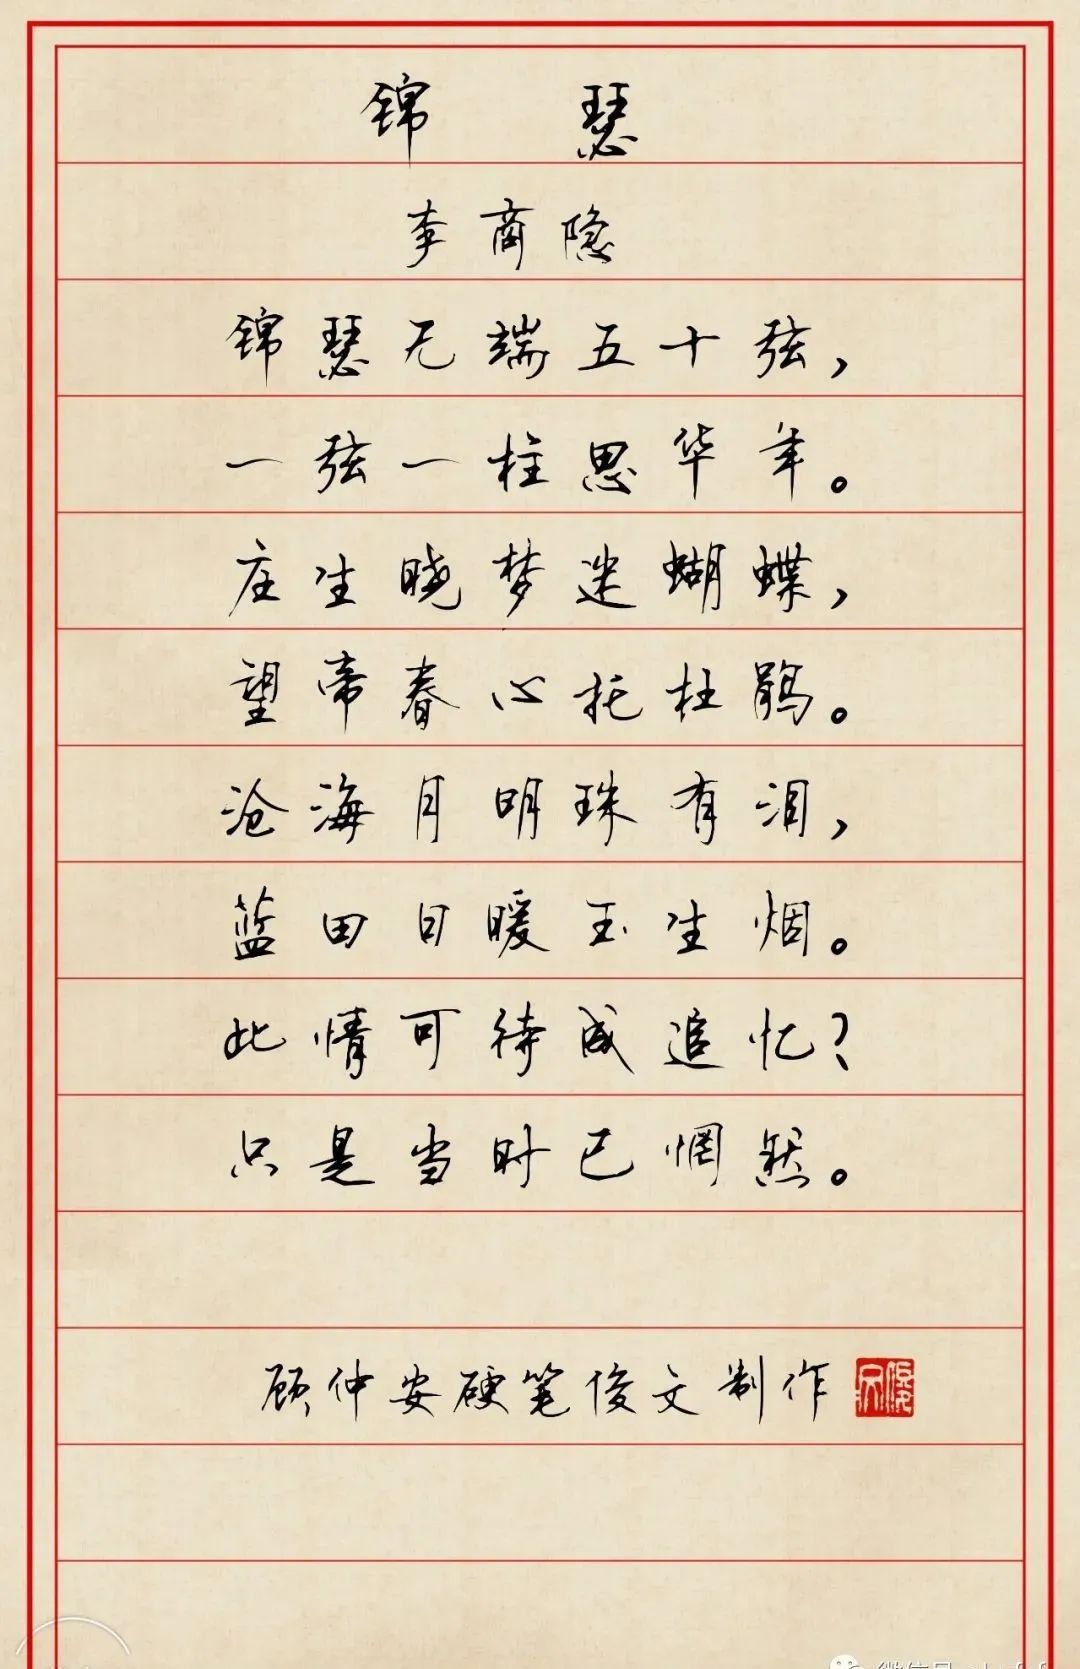 锦瑟
李商隐
锦瑟无端五十弦，
一弦一柱思华年。
庄生晓梦迷蝴蝶，
望帝春心托杜鹃。
沧海月明珠有泪，
蓝田日暖玉生烟。
此情可待成追忆？
只是当时已惘然。
顾仲安硬笔俊文制作